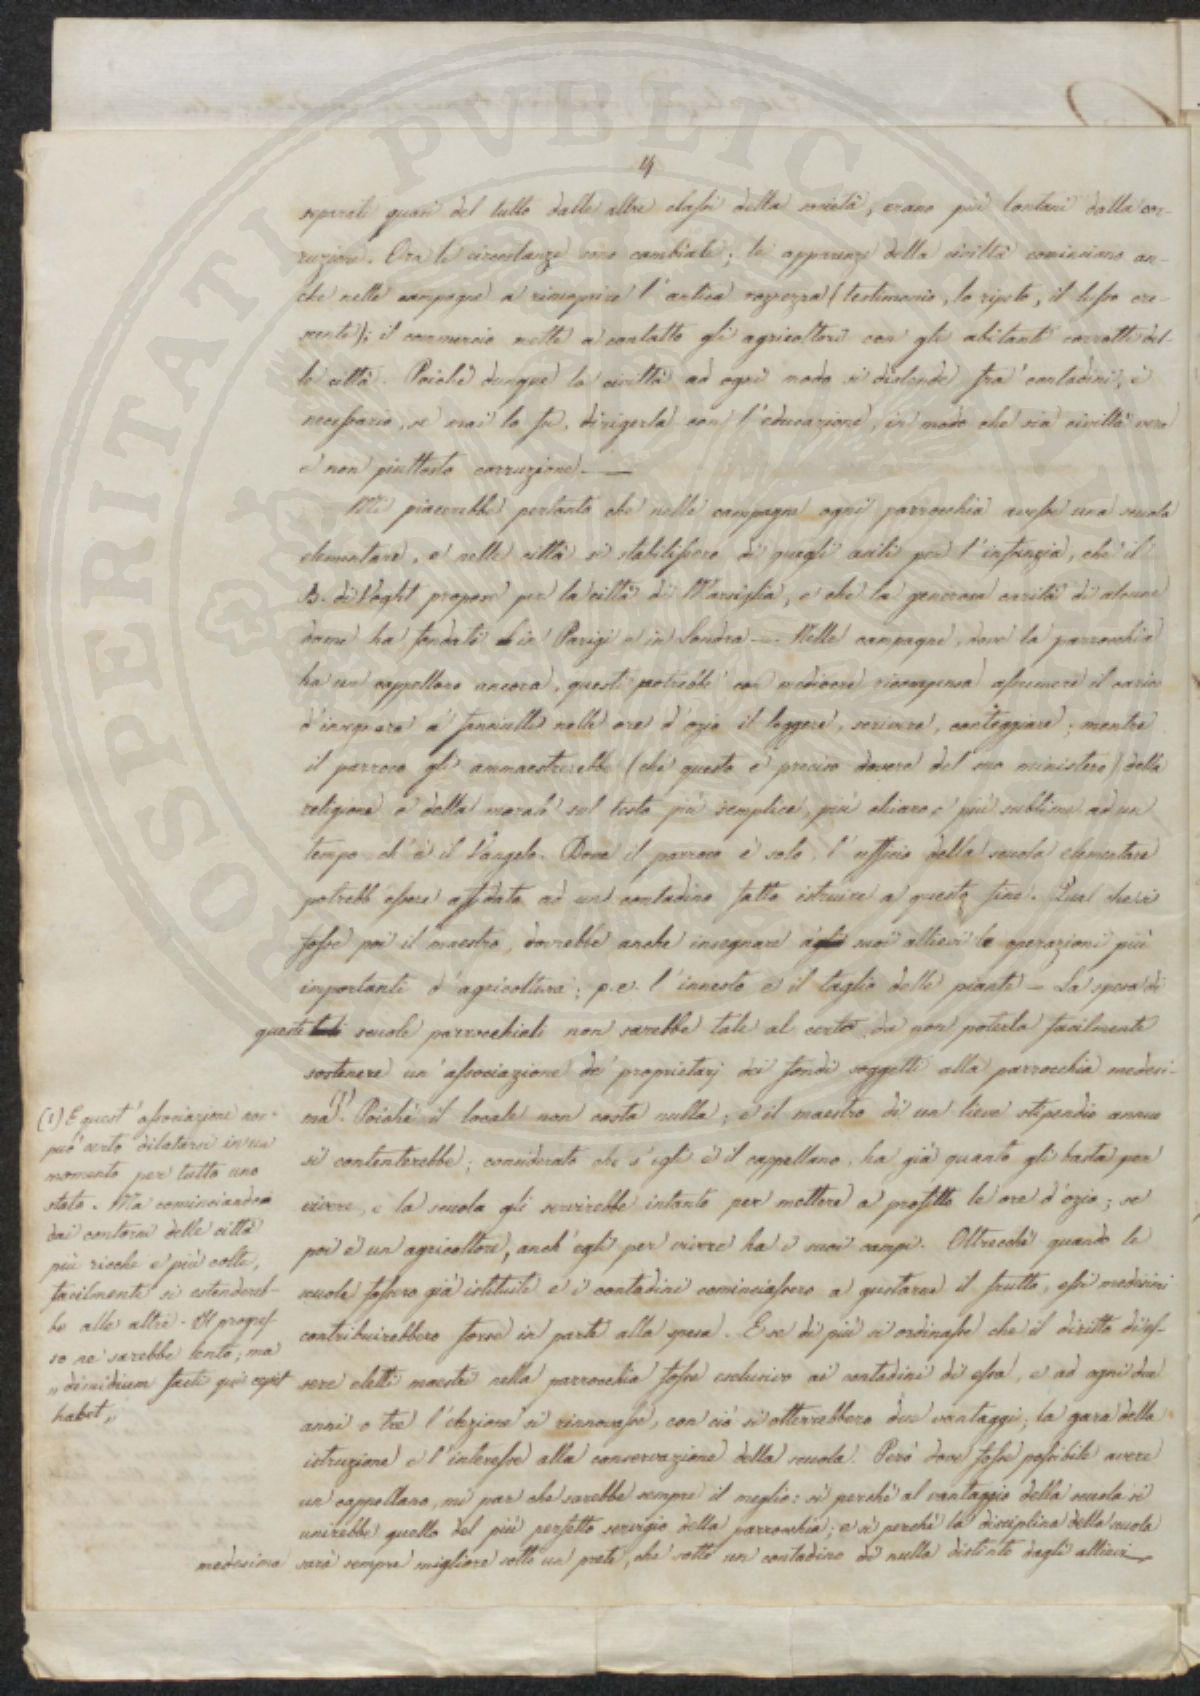 4
separati quasi del tutto dalle altre classi della società, erano più lontani dalla cor-
ruzione. Ora le circostanze sono cambiate; le apparenze della civiltà cominciano an-
che nelle campagne a ricoprire l'antica rozzezza (testimonio, lo ripeto, il lusso cre-
scente); il commercio mette a contatto gli agricoltori con gli abitanti corrotti del-
le città. Poichè dunque la civiltà ad ogni modo si distende fra' contadini, è
necessario, se mai lo fu, dirigerla con l'educazione, in modo che sia civiltà vera
e non piuttosto corruzione. —
Mi piacerebbe pertanto che nelle campagne ogni parrocchia avesse una scuola
elementare, e nelle città si stabilissero di quegli asili per l'infanzia, che il
B. di Voght propose per la città di Marsiglia, e che la generosa carità di alcune
dame ha fondati in Parigi e in Londra — Nelle campagne, dove la parrocchia
ha un cappellano ancora, questi potrebbe con mediocre ricompensa assumere il carico
d'insegnare a' fanciulli nelle ore d'ozio il leggere, scrivere, conteggiare; mentre
il parroco gli ammaestrerebbe (chè questo è preciso dovere del suo ministero) della
religione e della morale sul testo più semplice, più chiaro e più sublime ad un
tempo ch'è il Vangelo. Dove il parroco è solo, l'ufficio della scuola elementare
potrebb'essere affidato ad un contadino fatto istruire a questo fine. Qual che si
fosse poi il maestro, dovrebbe anche insegnare a' suoi allievi le operazioni più
importanti d'agricoltura; p. e. l'innesto e il taglio delle piante — La spesa di
queste scuole parrocchiali non sarebbe tale al certo da non poterla facilmente
sostenere un'associazione de' proprietarj dei fondi soggetti alla parrocchia medesi-
ma (1). Poichè il locale non costa nulla; e il maestro di un lieve stipendio annuo
si contenterebbe; considerato che s'egli è il cappellano, ha già quanto gli basta per
vivere, e la scuola gli servirebbe intanto per mettere a profitto le ore d'ozio; se
poi è un agricoltore, anch'egli per vivere ha i suoi campi. Oltrecchè quando le
scuole fossero già istituite e i contadini cominciassero a gustarne il frutto, essi medesimi
contribuirebbero forse in parte alla spesa. E se di più si ordinasse che il diritto di es-
sere eletti maestri nella parrocchia fosse esclusivo ai contadini di essa, e ad ogni due
anni o tre l'elezione si rinnovasse, con ciò si otterrebbero due vantaggi; la gara della
istruzione e l'interesse alla conservazione della scuola. Però dove fosse possibile avere
un cappellano, mi par che sarebbe sempre il meglio: sì perchè al vantaggio della scuola si
unirebbe quello del più perfetto servigio della parrocchia; e sì perchè la disciplina della scuola
medesima sarà sempre migliore sotto un prete, che sotto un contadino di nulla distinto dagli allievi —
(1) E quest'associazione non
può certo dilatarsi in un
momento per tutto uno
stato. Ma cominciando
dai contorni delle città
più ricche e più colte,
facilmente si estendereb-
be alle altre. Il progres-
so ne sarebbe lento; ma
"dimidium facti qui cepit
habet"
PROSPERITATI PUBLICAE